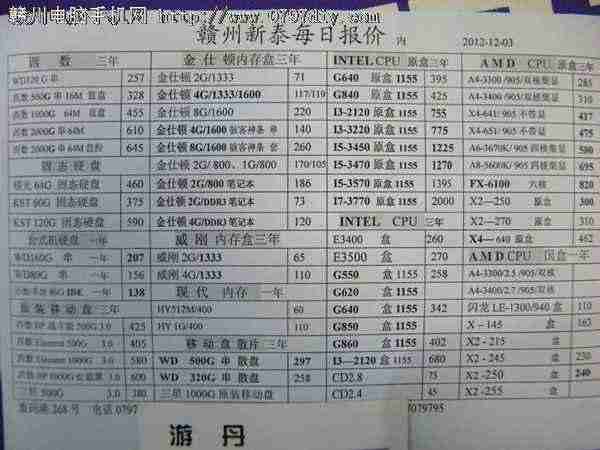 赣州电脑手机网 http://www.0797diy.com
赣州新泰每日报价 内 2012-12-03
西数 三年
WD320G串 257
西数 500G 串 16M 蓝盘 328
西数 1000G 64M 蓝盘 455
西数 2000G 串 64M 610
固态硬盘
固态硬盘 460
KST 60G 固态硬盘 375
KST 120G 固态硬盘 590
台式机硬盘 一年
WD160G 串 一年 207
WD80G 串 一年 156
138
原装移动盘 三年
3.0 425
3.0 405
3.0 580
600
三星 500G 3.0 380
金仕顿内存盒三年
金仕顿 2G/1333 71
金仕顿 4G/1333/1600 117/119
金仕顿 8G/1600 220
金仕顿 4G/1600 骇客神条 单 140
金仕顿 8G/1600 骇客神条 套 260
金仕顿 2G/ 800、1G/800 170/105
金仕顿 2G/800 笔记本 186
金仕顿 2G/DDR3 笔记本 73
金仕顿 4G/DDR3 笔记本 120
威刚 内存盒三年
威刚 2G/1333 65
威刚 4G/1333 110
现代 内存 一年
HY512M/400 60
HY 1G/400 110
移动盘 散片 三年
WD 500G 串 散盘 297
WD 320G 串 散盘 258
三星 1000G 原装移动盘
INTEL CPU 原盒三年
G640 原盒 1155 395
G840 原盒 1155 425
I3-2120 原盒 1155 755
I3-3220 原盒 1155 775
I5-3450 原盒 1155 1225
I5-3470 原盒 1155 1270
I5-3570 原盒 1155 1395
I7-3770 原盒 1155 2000
INTEL CPU 三年
E3400 盒 260
E3500 盒 270
G550 盒 1155 258
G620 盒 1155
G640 盒 1155 342
G850 盒 1155
G860 盒 1155 402
I3—2120 盒 1155 680
CD2.8 75
CD2.4 45
AMD CPU 原盒三年
A4-3300 /905/双核集显 285
A4-3400 /905/双核集显 310
X4-641/ 905 不带显 417
X4-651/ 905 不带显 475
A6-3670K/ 905 四核集显 580
A8-5600K/ 四核集显 695
FX-6100 六核 820
X2—250 原盒 300
X2—270 原盒 310
X4—640 原盒 462
AMD CPU 盒一年
A4-3300/2.5 /905/双核
A4-3400/2.7 /905/双核
闪龙 LE-1300/940 盒 110
X－145 盒 163
X2 -215 盒
X2 -245 盒 230
X2 -250 盒 240
X2 -255 盒
268号 电话 0797
079795
游丹